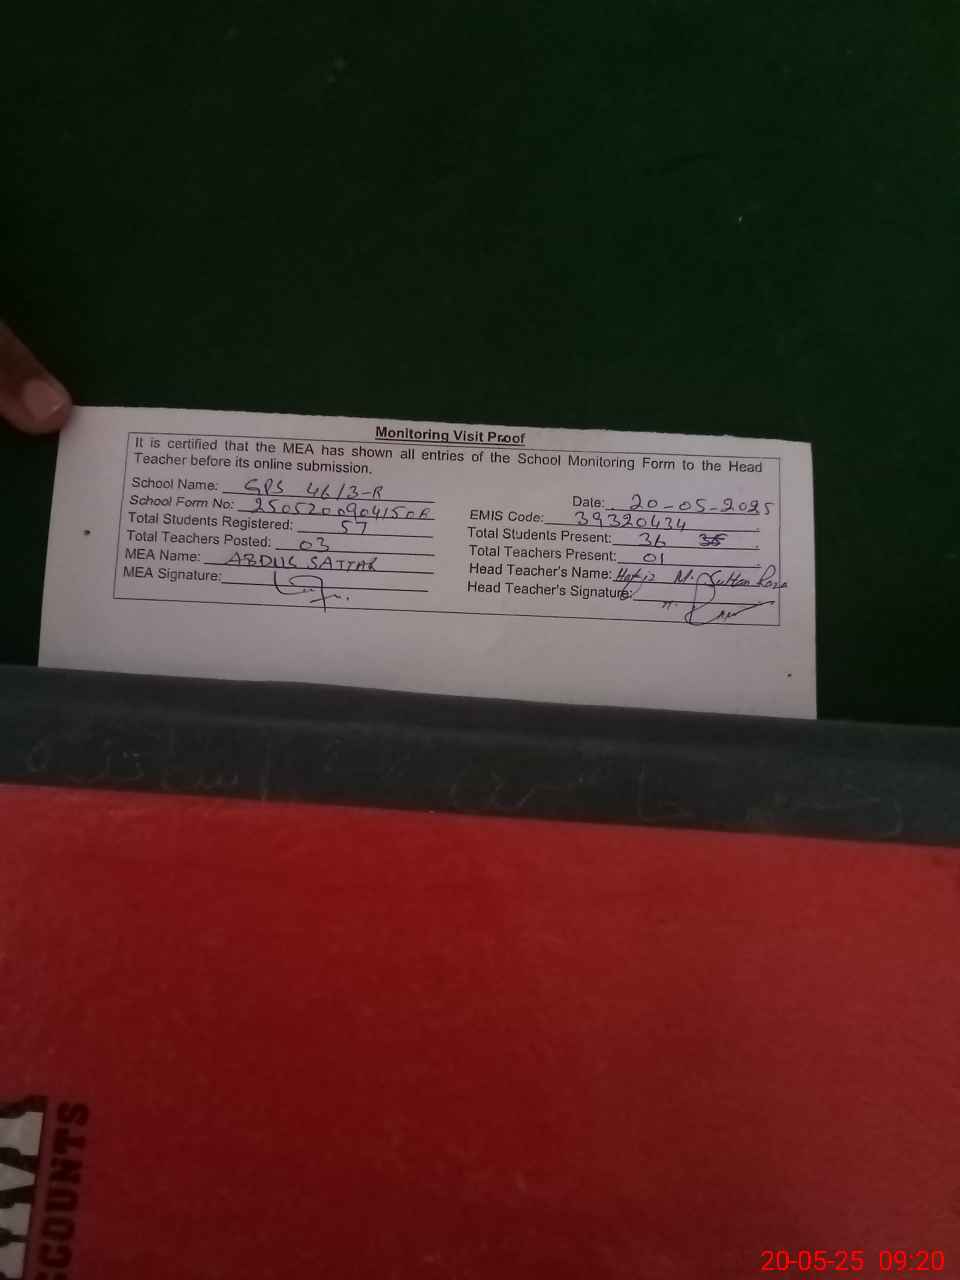 Monitoring Visit Proof
It is certified that the MEA has shown all entries of the School Monitoring Form to the Head
Teacher before its online submission.
School Name: GPS 46/3-R
Date: 20-05-2025
School Form No:
EMIS Code: 39320434
Total Students Registered: 57
Total Students Present: 36
Total Teachers Posted: 03
Total Teachers Present: 01
MEA Name: ABDUS SATTAR
Head Teacher's Name: Hafiz M. Sultan
MEA Signature:
Head Teacher's Signature:
CCOUNTS
20-05-25 09:20